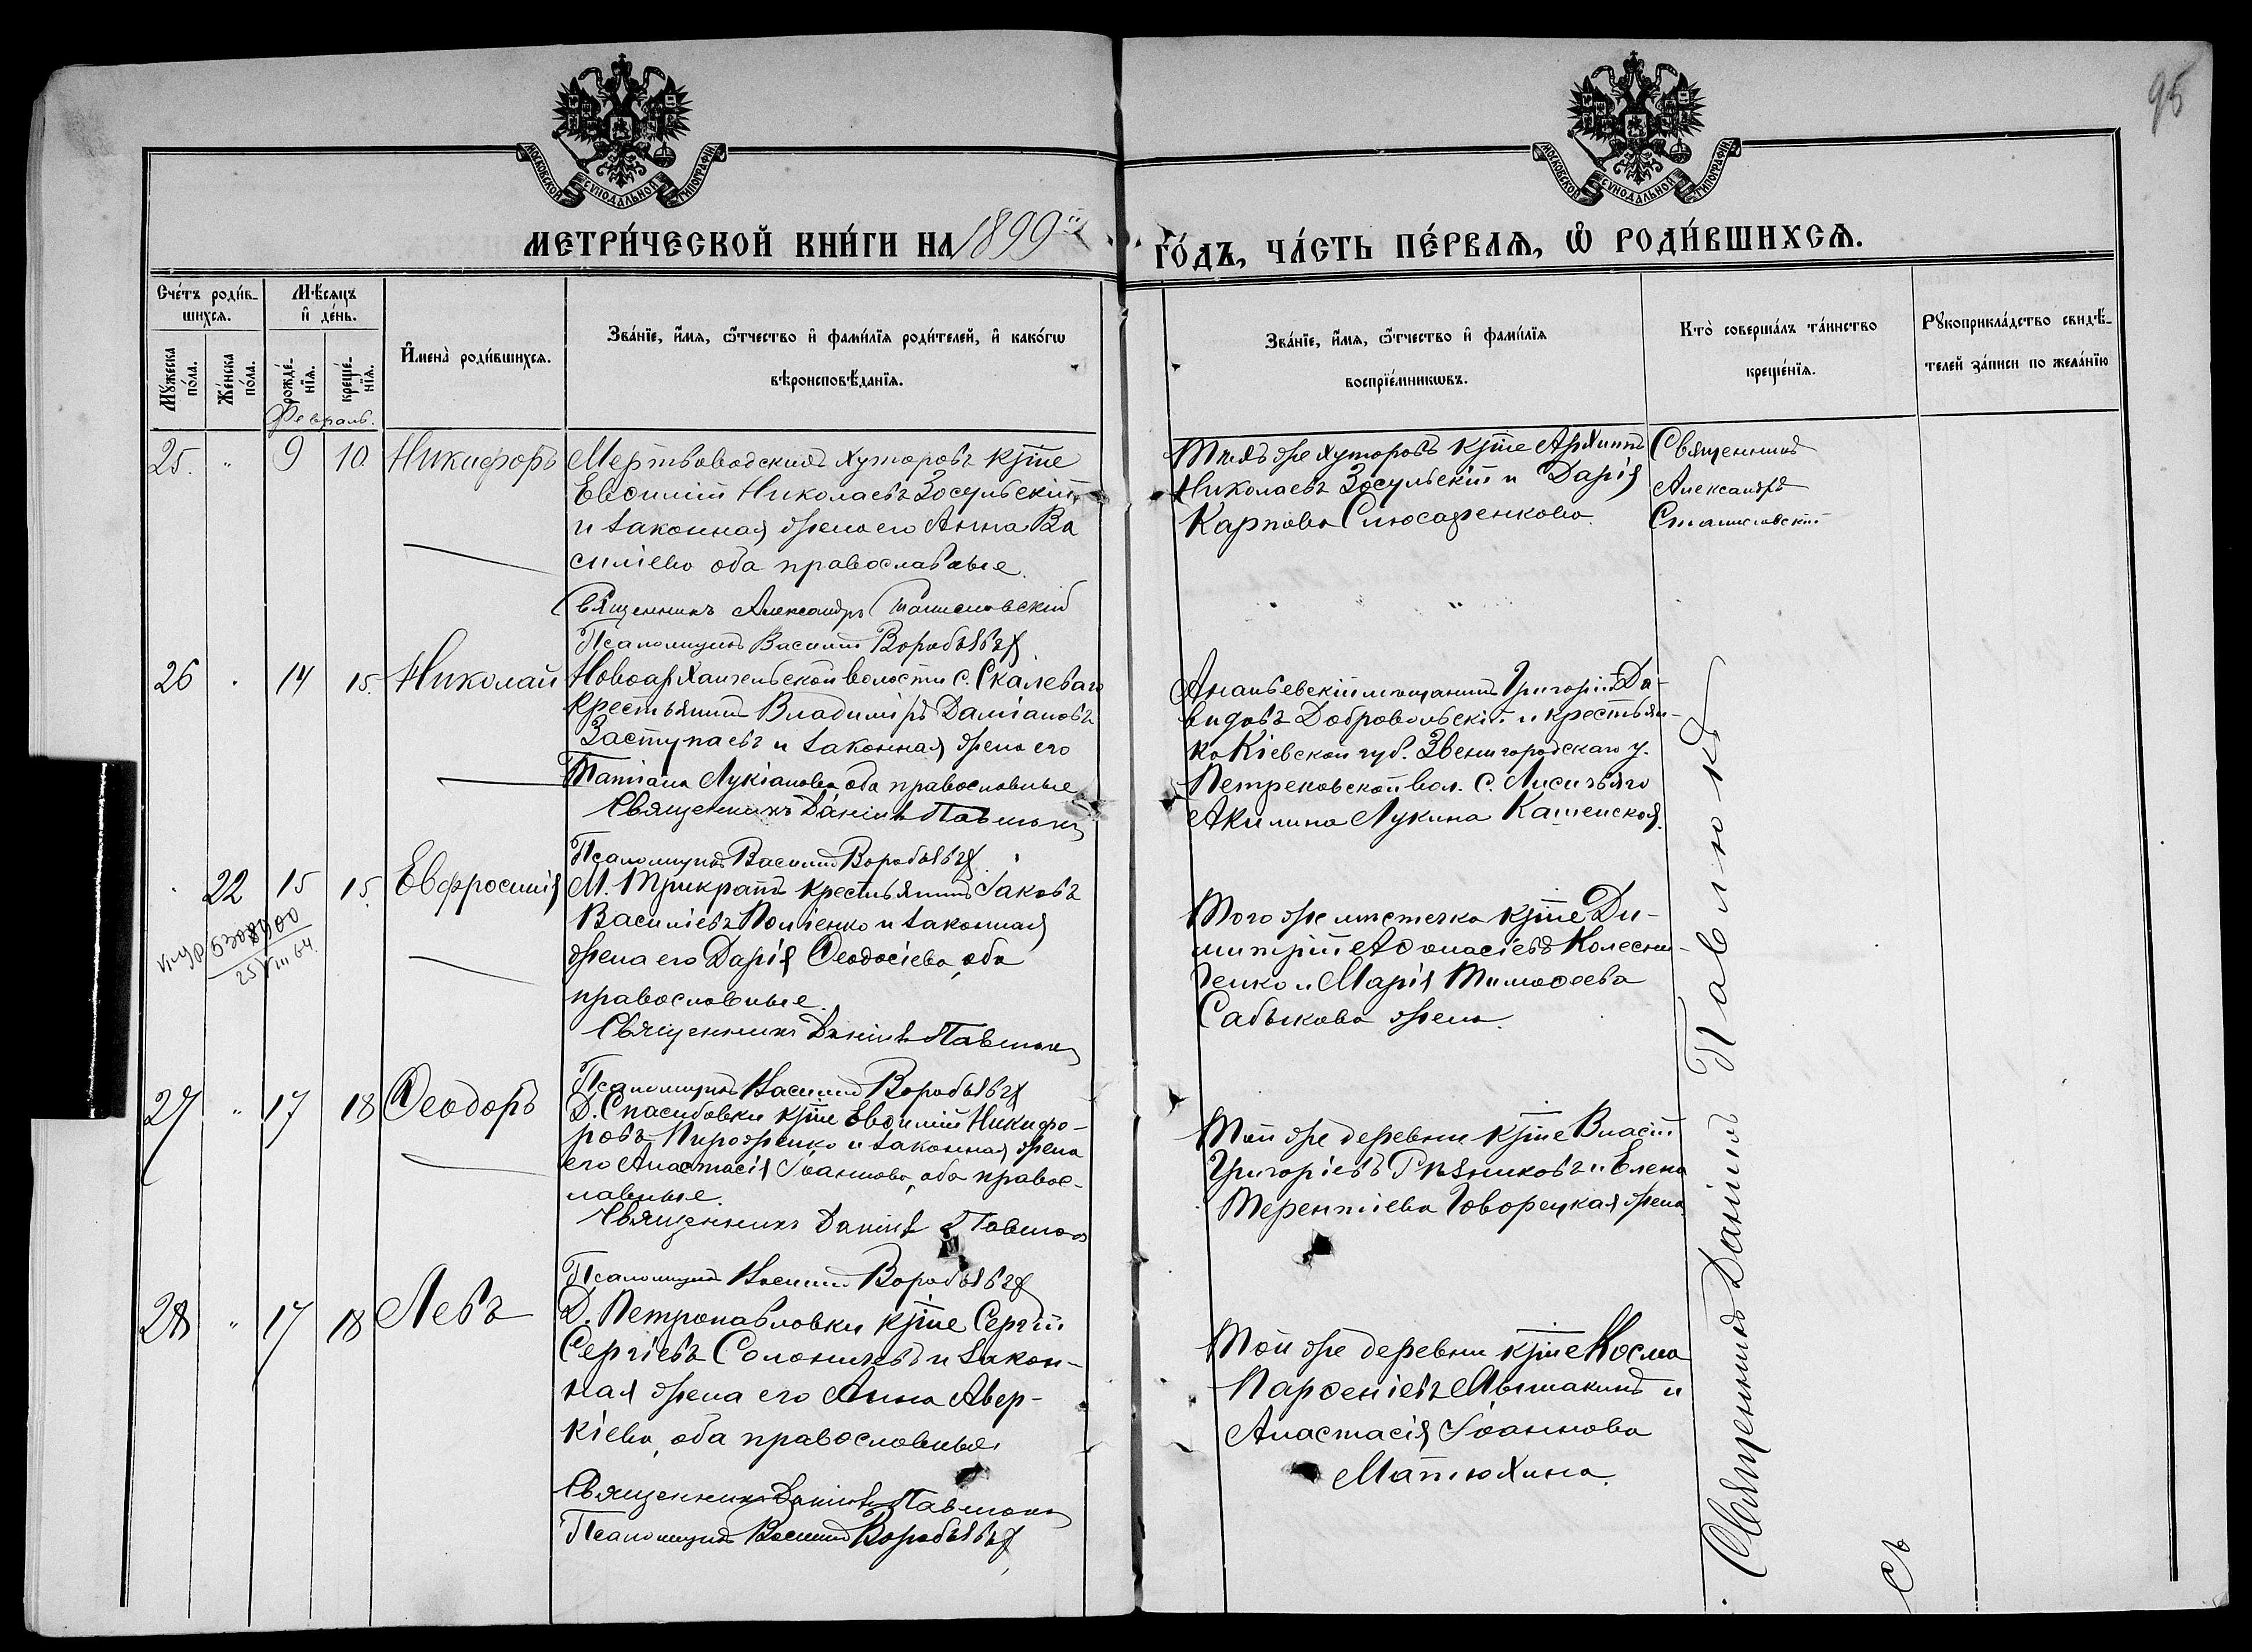 95
МОСКОВСКОЙ СУНОДАЛЬНОЙ ТИПОГРАФІИ
МОСКОВСКОЙ СУНОДАЛЬНОЙ ТИПОГРАФІИ
МЕТРИ́ЧЕСКОЙ КНИ́ГИ НА 1899ый
ГО́ДЪ, ЧА́СТЬ ПЕ́РВАѦ, Ѡ РОДИ́ВШИХСѦ.
Сче́тъ роди́в-
шихсѧ.
Мѣ́сѧцъ
и҆ де́нь.
Мꙋ́жеска по́ла.
Же́нска по́ла.
рожде́-
нїѧ.
креще́-
нїѧ.
И҆мена̀ роди́вшихсѧ.
Зва́нїе, и҆́мѧ, ѻ҆́тчество и҆ фами́лїѧ роди́телей, и҆ како́гѡ
вѣроисповѣ́данїѧ.
Зва́нїе, и҆́мѧ, ѻ҆́тчество и҆ фами́лїѧ
воспрїе́мникѡвъ.
Кто̀ соверша́лъ та́инство
креще́нїѧ.
Рꙋкоприкла́дство свидѣ́-
телей за́писи по жела́нїю
Февраль.
25. " 9 10 Никифоръ
Мертвоводскихъ хуторовъ кр-не
Евѳимій Николаевъ Зосульскій
и законная жена его Анна Ва
силіева оба православные.
Священникъ Александръ Станиславскій
Псаломщикъ Василій Воробьевъ
Тѣхъ же хуторовъ кр-не Архиппъ
Николаевъ Зосульскій и Дарія
Карпова Слюсаренкова.
Священникъ
Александръ
Станиславскій
26 " 14 15. Николай
Новоархангельской волости с. Скалеваго
крестьянинъ Владиміръ Даміановъ
Заступаевъ и законная жена его
Татіана Лукіанова, оба православные
Священникъ Даніилъ Павлюкъ
Псаломщикъ Василій Воробьевъ
Ананьевскій мѣщанинъ Григорій Да-
видовъ Добровольскій и крестьян-
ка Кіевской губ. Звенигородскаго у.
вол. с. Лисичьяго
Акилина Лукина
" 22 15 15. Евфросинія
25/VIII 64.
М. Трикратъ крестьянинъ Іаковъ
Василіевъ и законная
жена его Дарія Ѳеодосіева, оба
православные.
Священникъ Даніилъ Павлюкъ
Псаломщикъ Василій Воробьевъ
Того же мѣстечка кр-не Ди-
митрій Аѳанасіевъ Колесни-
ченко и Марія Тимоѳеева
жена.
27 " 17 18 Ѳеодоръ
Д. Спасибовки кр-не Евѳимій Никифо-
ровъ Пироженко и законная жена
его Анастасія Іоаннова, оба правос-
лавные.
Священникъ Даніилъ Павлюкъ
Псаломщикъ Василій Воробьевъ
Той же деревни кр-не Власій
Григоріевъ Рѣзниковъ и Елена
Терентіева Говорецкая жена.
28 " 17 18 Левъ
Д. Петропавловки кр-не Сергій
Сергіевъ и закон-
ная жена его Анна Авер-
кіева, оба православные
Священникъ Даніилъ Павлюкъ
Псаломщикъ Василій Воробьевъ
Той же деревни кр-не Косма
Парѳеніевъ и
Анастасія Іоаннова
Матюхина.
Священникъ Даніилъ Павлюкъ